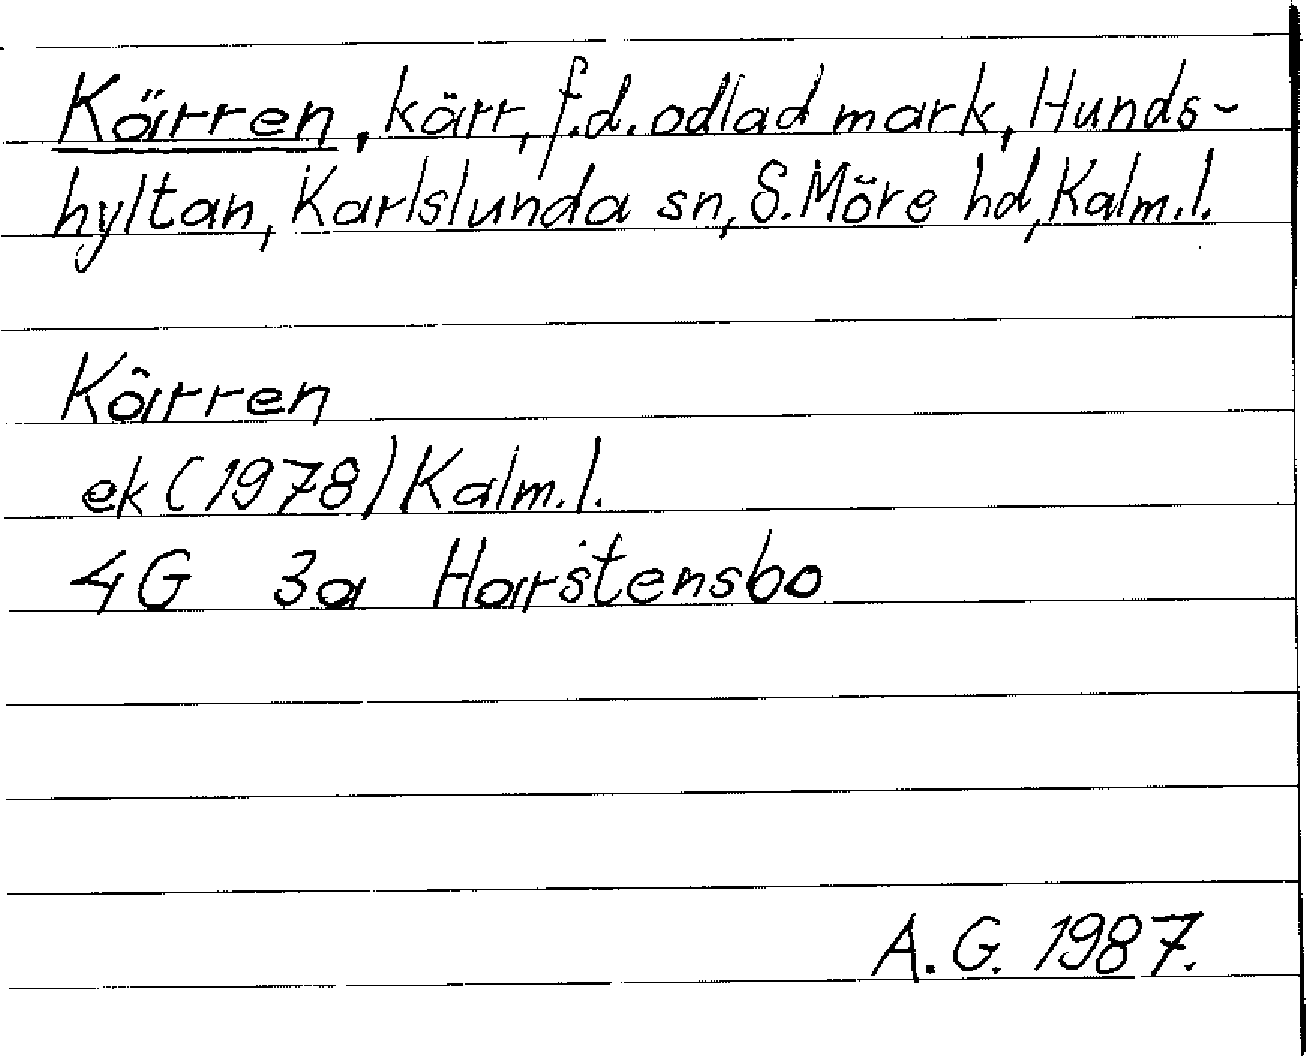 Kärren, kärr, f.d. odlad mark, Hunds-
hyltan, Karlslunda sn, S. Möre hd, Kalm. l.
Kärren
ek (1978) Kalm. l.
4G 3a Harstensbo
A. G. 1987.